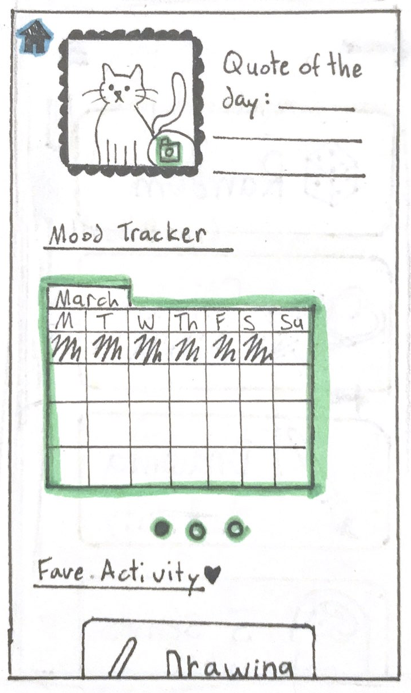 Quote of the
day:
Mood Tracker
March
M T W Th F S Su
Fave Activity
Drawing